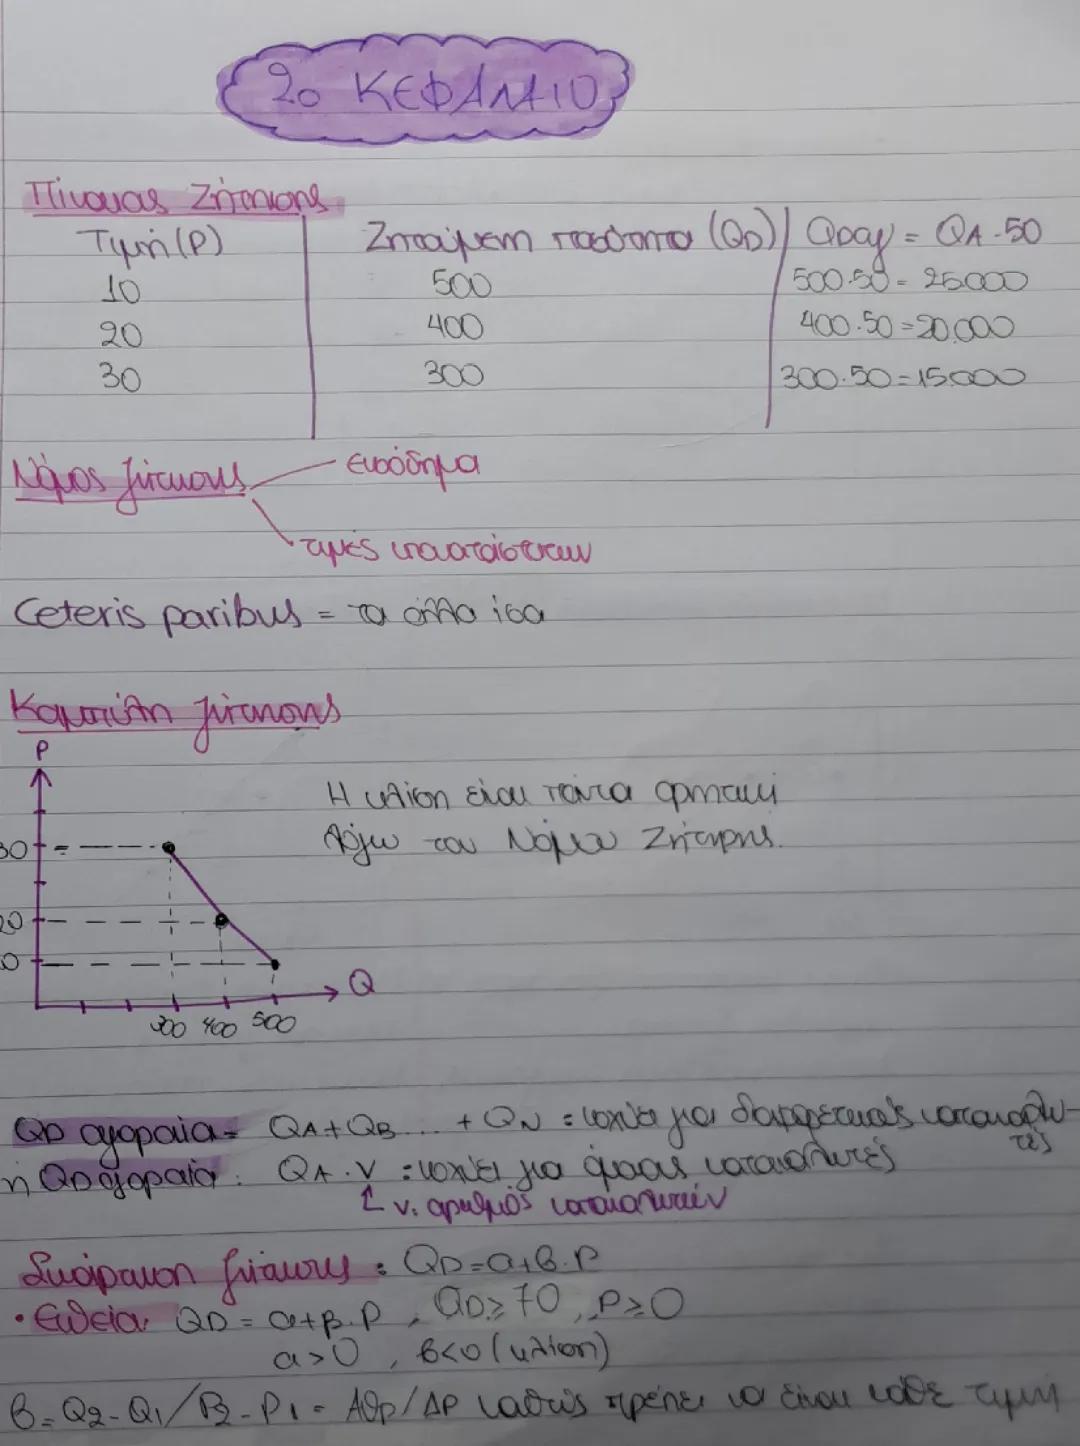 2ο ΚΕΦΑΛΑΙΟ
Πίνακας Ζήτησης
Τιμή (P) Ζητούμενη ποσότητα (QD) QDαγ = QA·50
10 500 500·50 = 25.000
20 400 400·50 = 20.000
30 300 300·50 = 15.000
Νόμος ζήτησης εισόδημα
τιμές υποκατάστατων
Ceteris paribus = τα άλλα ίσα
Καμπύλη ζήτησης
P
Η κλίση είναι πάντα αρνητική
λόγω του Νόμου Ζήτησης.
30
20
Q
300 400 500
QD αγοραία = QA+QB... + QN = ισχύει για διαφορετικούς καταναλω-
τές
ή QD αγοραία: QA·ν = ισχύει για όμοιους καταναλωτές
ν: αριθμός καταναλωτών
Συνάρτηση ζήτησης: QD=α+β·P
• Ευθεία QD = α+β·P, QD≥70, P≥0
α>0, β<0 (κλίση)
β=Q2-Q1/P2-P1 = ΔQD/ΔP καθώς πρέπει να είναι κάθε τιμή